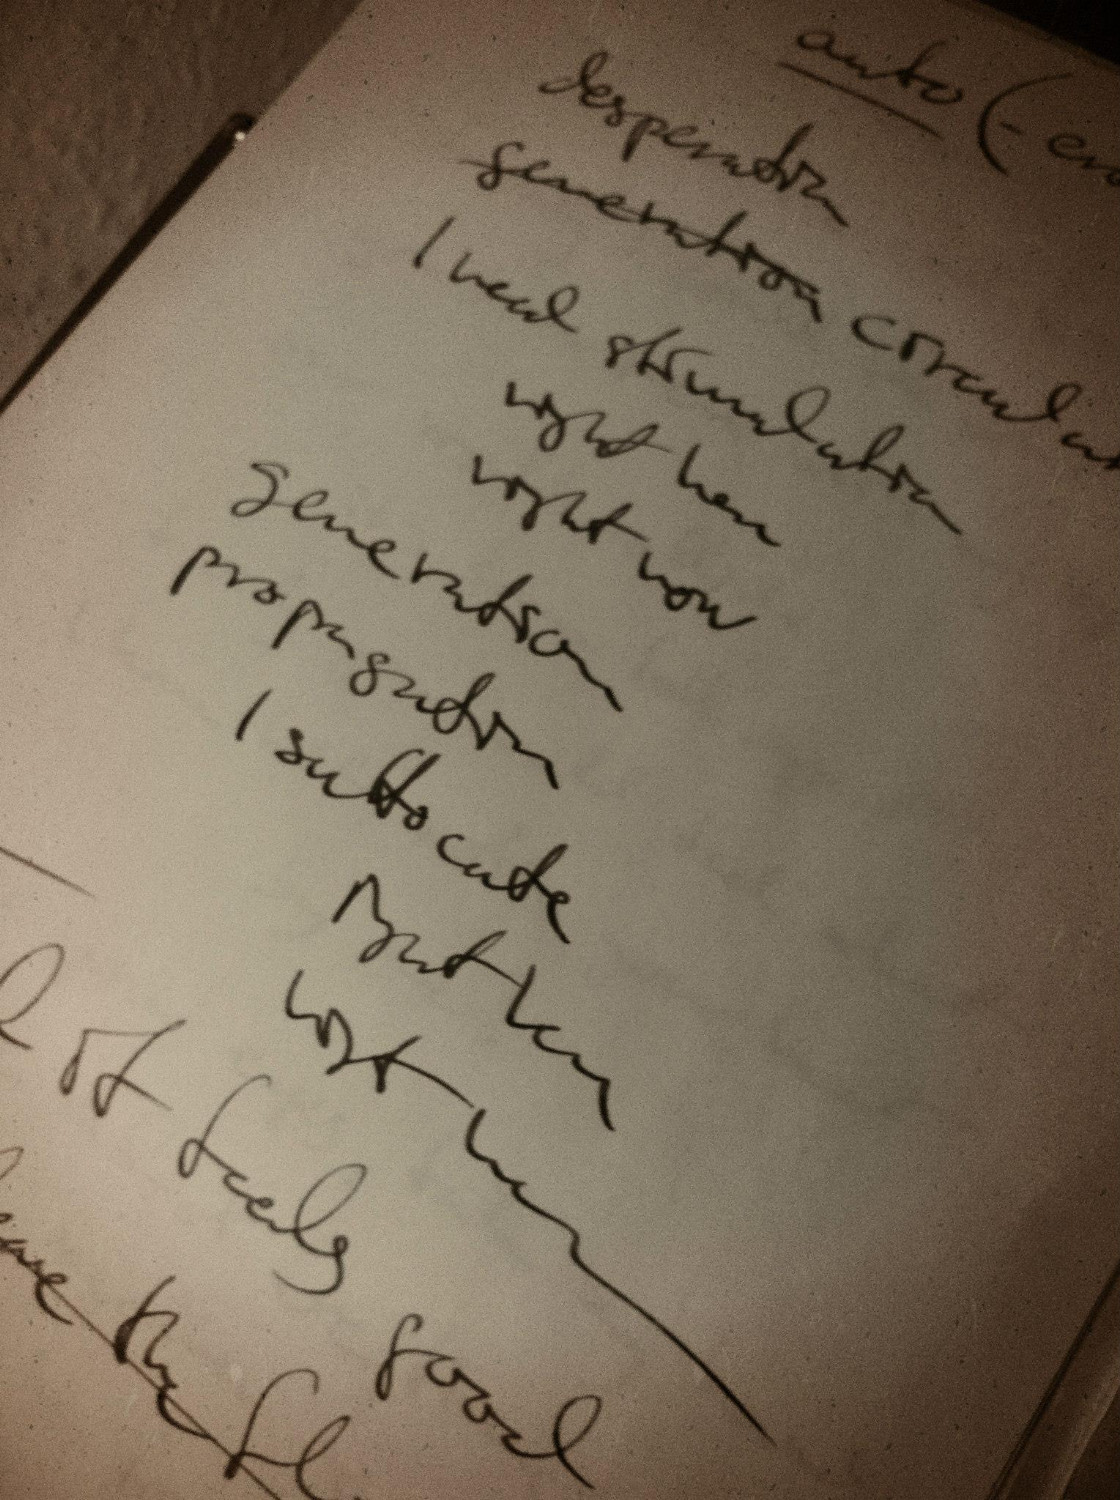 auto (-
desperation
generation circulat
I need stimulation
right here
right now
generation
propagation
I suffocate
right here
right
it feels good
the